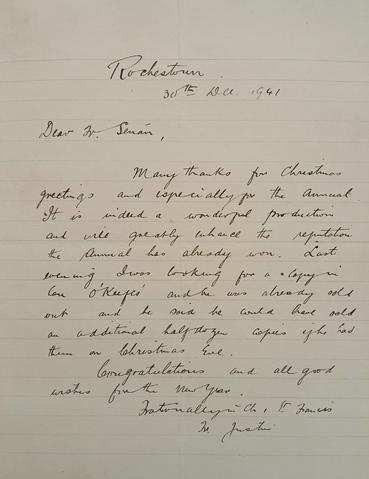 Rochestown.
30th Dec. 1941
Dear Fr. Senán,
Many thanks for Christmas
greetings and especially for the Annual.
It is indeed a wonderful production
and will greatly enhance the reputation
the Annual has already won. Last
evening I was looking for a copy in
Con O'Keefe's and he was already sold
out and he said he would have sold
an additional half dozen copies if he had
them on Christmas Eve.
Congratulations and all good
wishes for the New Year.
Fraternally in Ch. & St. Francis
Fr. Justin